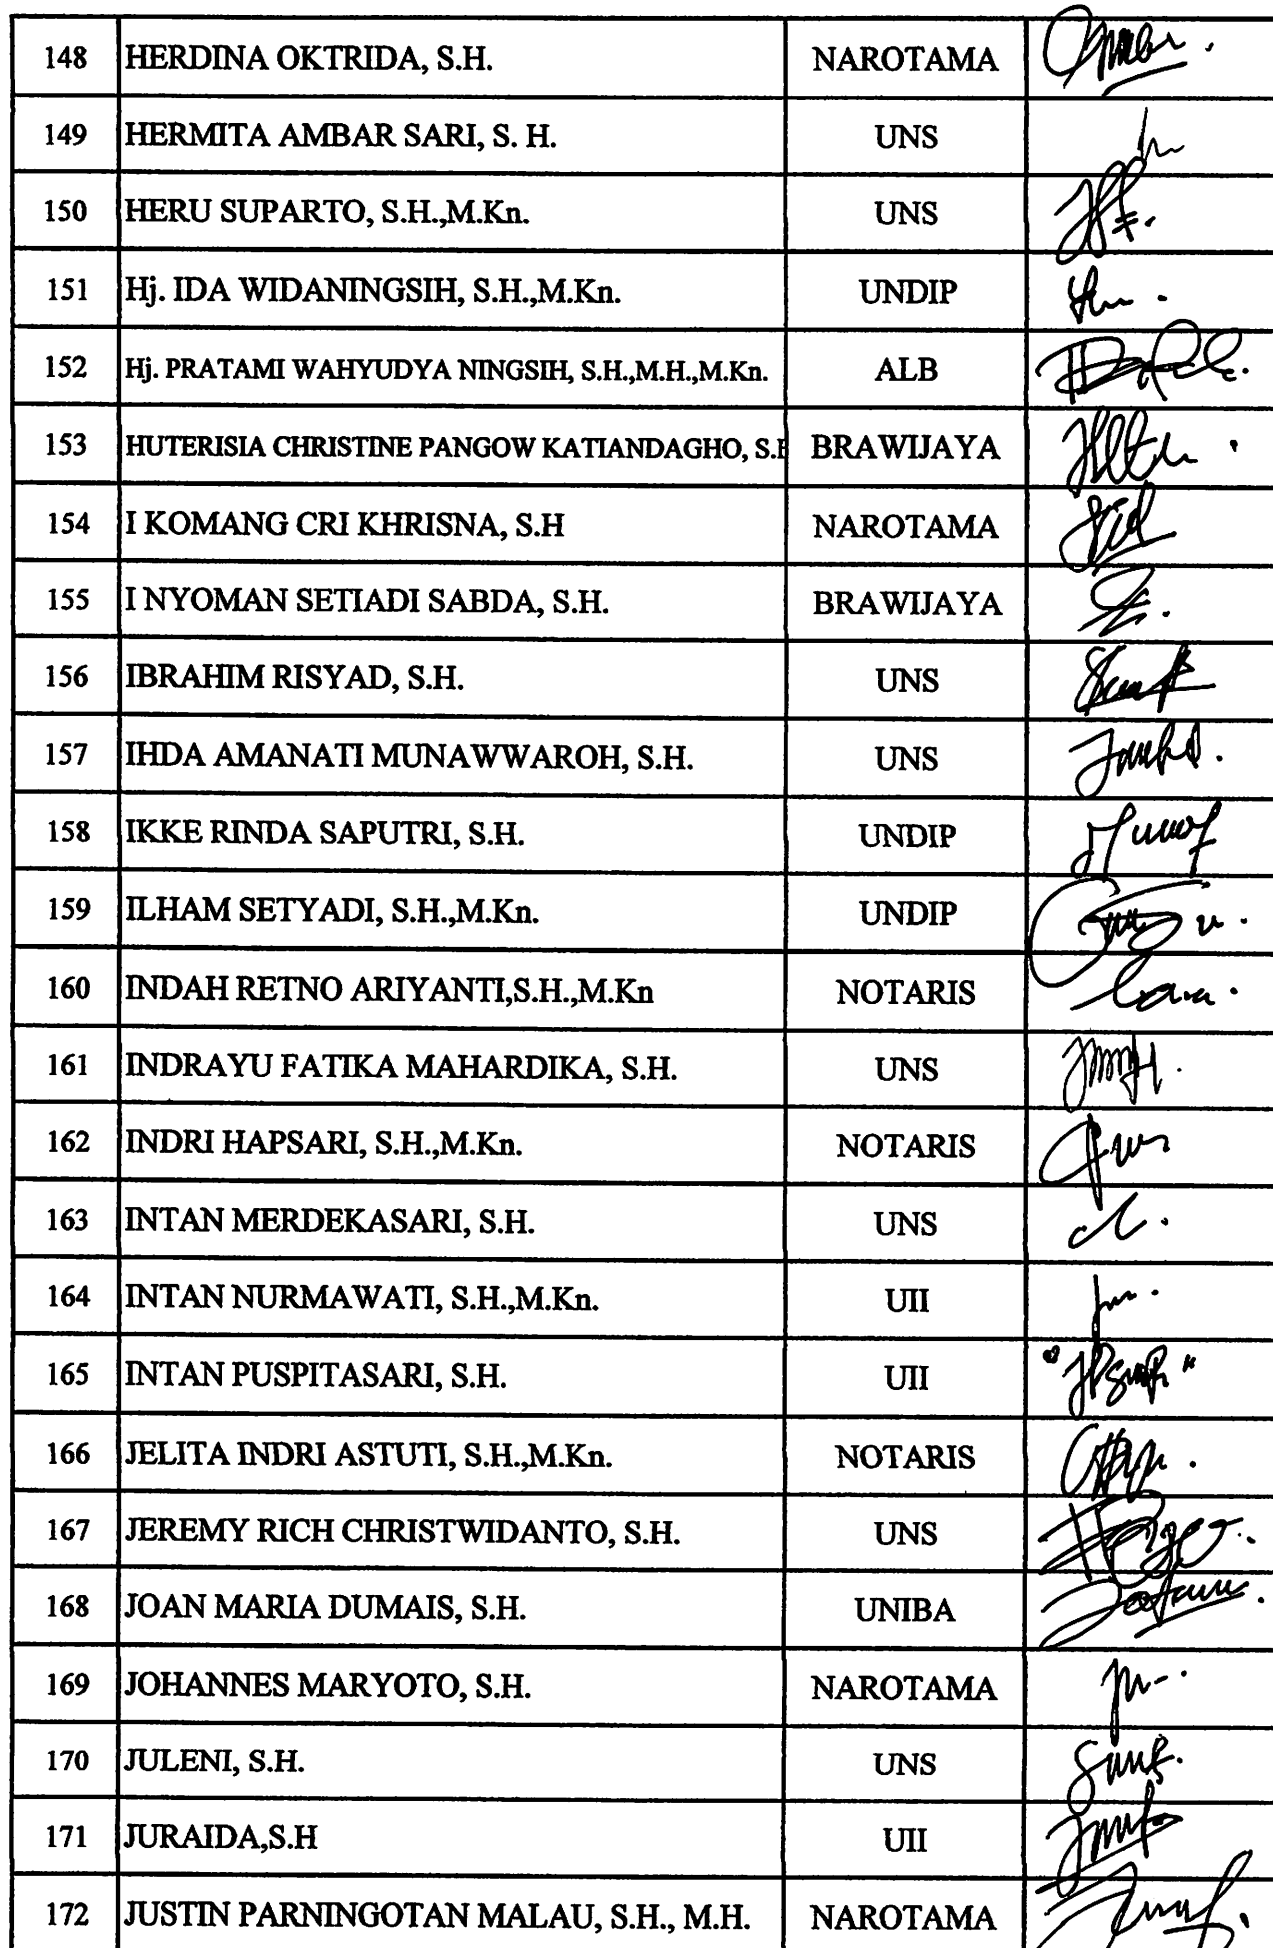 148 HERDINA OKTRIDA, S.H. NAROTAMA
149 HERMITA AMBAR SARI, S. H. UNS
150 HERU SUPARTO, S.H.,M.Kn. UNS
151 Hj. IDA WIDANINGSIH, S.H.,M.Kn. UNDIP
152 Hj. PRATAMI WAHYUDYA NINGSIH, S.H.,M.H.,M.Kn. ALB
153 HUTERISIA CHRISTINE PANGOW KATIANDAGHO, BRAWIJAYA
154 I KOMANG CRI KHRISNA, S.H NAROTAMA
155 I NYOMAN SETIADI SABDA, S.H. BRAWIJAYA
156 IBRAHIM RISYAD, S.H. UNS
157 IHDA AMANATI MUNAWWAROH, S.H. UNS
158 IKKE RINDA SAPUTRI, S.H. UNDIP
159 ILHAM SETYADI, S.H.,M.Kn. UNDIP
160 INDAH RETNO ARIYANTI,S.H.,M.Kn NOTARIS
161 INDRAYU FATIKA MAHARDIKA, S.H. UNS
162 INDRI HAPSARI, S.H.,M.Kn. NOTARIS
163 INTAN MERDEKASARI, S.H. UNS
164 INTAN NURMAWATI, S.H.,M.Kn. UII
165 INTAN PUSPITASARI, S.H. UII
166 JELITA INDRI ASTUTI, S.H.,M.Kn. NOTARIS
167 JEREMY RICH CHRISTWIDANTO, S.H. UNS
168 JOAN MARIA DUMAIS, S.H. UNIBA
169 JOHANNES MARYOTO, S.H. NAROTAMA
170 JULENI, S.H. UNS
171 JURAIDA,S.H UII
172 JUSTIN PARNINGOTAN MALAU, S.H., M.H. NAROTAMA